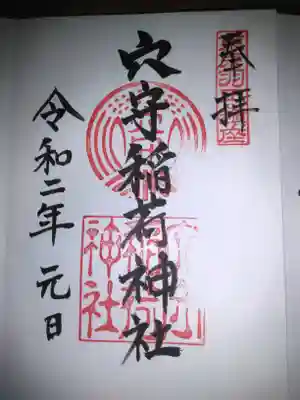 奉拝
穴守稲荷神社
令和二年 元日